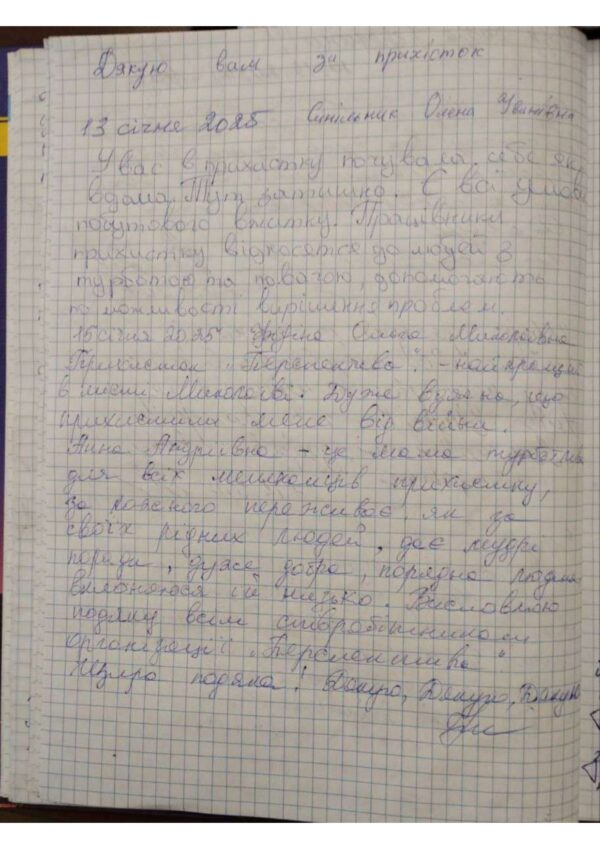 Дякую вам за прихісток
13 січня 2025 Синільник Олена Іванівна
У вас в прихистку почувала себе як
вдома. Тут затишно. Є всі умови
побутового вжитку. Працівники
прихистку відносятся до людей з
турботою та повагою, допомогають
по можливості вирішення проблем.
15 січня 2025 Ольга Миколаївна
Прихисток „Перспектива" - найкращий
в місті Миколаїві. Дуже вдячна, що
прихистили мене від війни.
Анна Андріївна - це мама турботлива
для всіх мешканців прихистку,
за кожного переживає як за
своїх рідних людей, дає мудрі
поради, дуже добра, порядна людина
вклоняюся їй низько. Висловлюю
подяку всім співробітникам
організації „Перспектива"
Щира подяка! Дякую, Дякую, Дякую